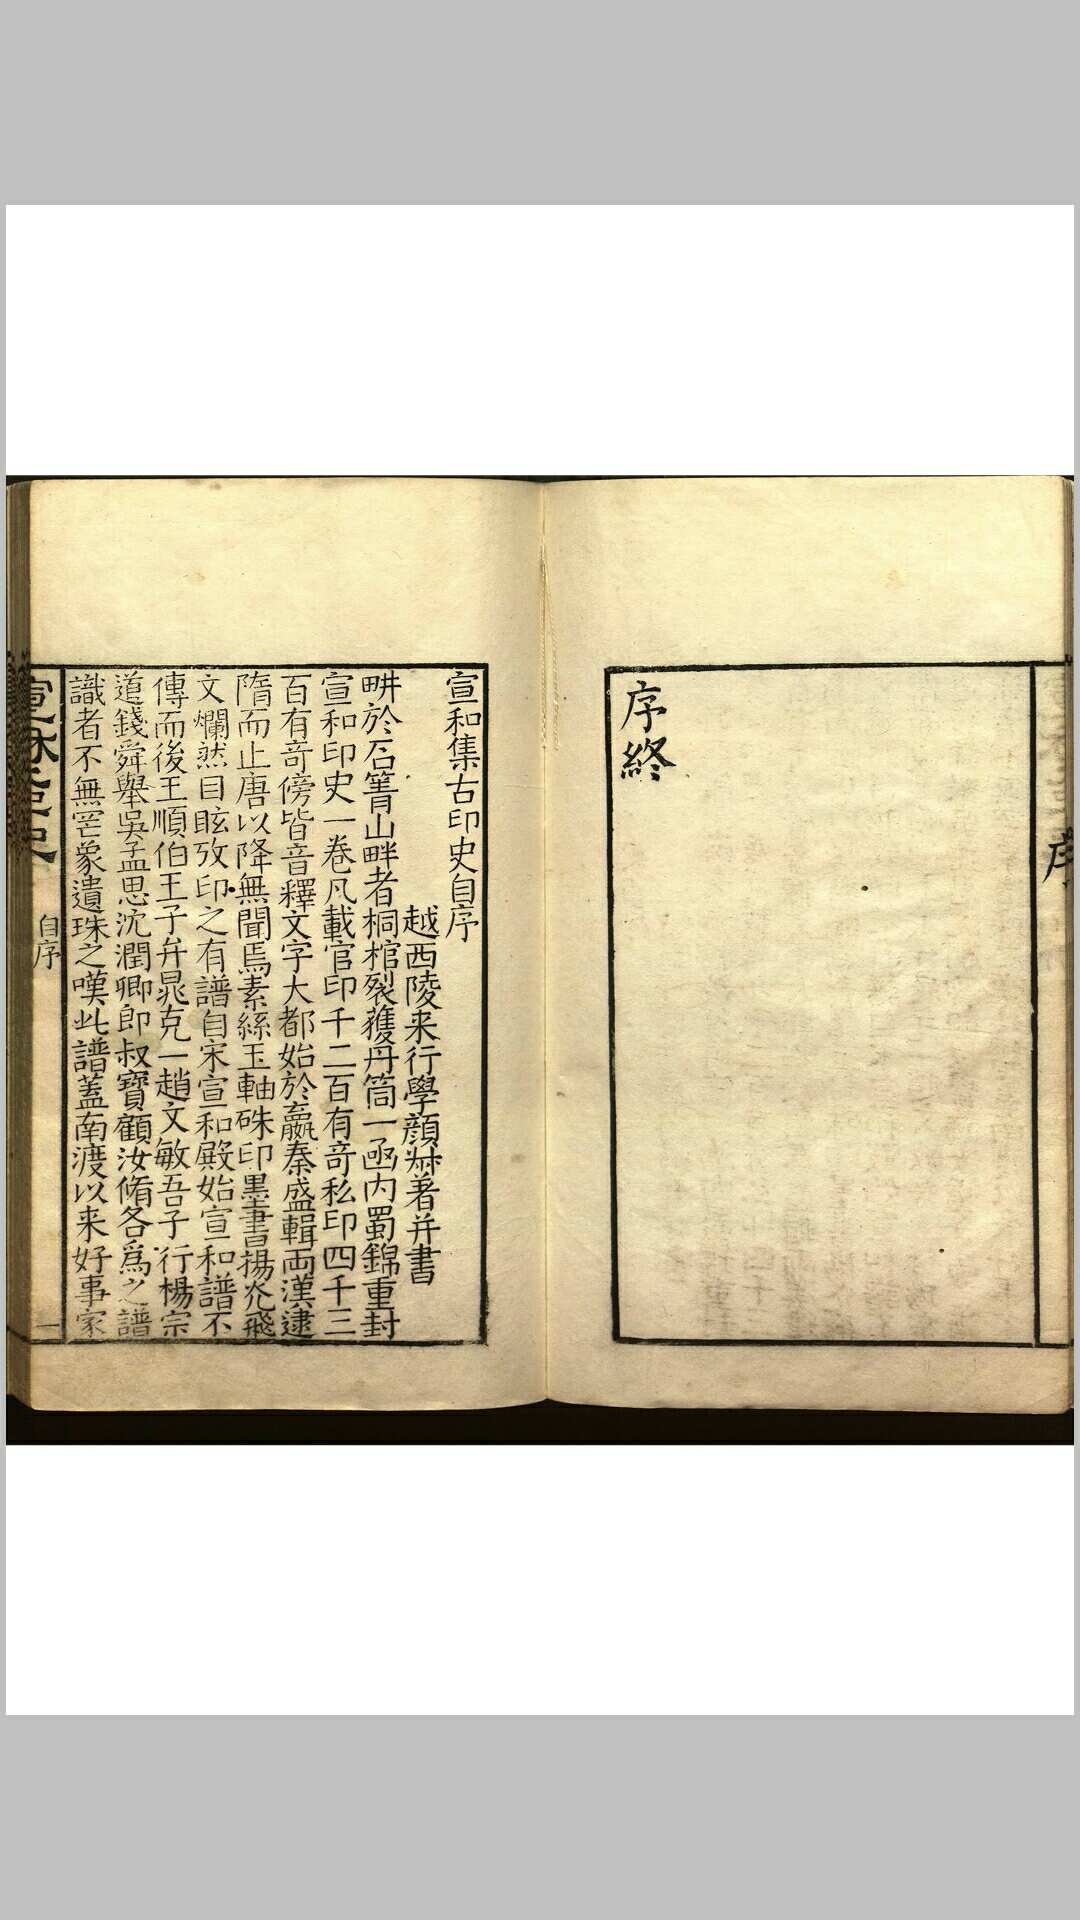 序終
宣和集古印史自序
越西陵来行學顏叔著并書
畊於石箐山畔者桐棺裂獲丹筒一函内蜀錦重封
宣和印史一卷凡載官印千二百有奇私印四千三
百有奇傍皆音釋文字大都始於嬴秦盛輯両漢逮
隋而止唐以降無聞焉素絲玉軸硃印墨書揚光飛
文爛然目眩攷印之有譜自宋宣和殿始宣和譜不
傳而後王順伯王子弁晁克一趙文敏吾子行楊宗
道錢舜舉吳孟思沈潤卿郎叔寶顧汝脩各爲之譜
識者不無罔象遺珠之嘆此譜蓋南渡以来好事家
自序
一